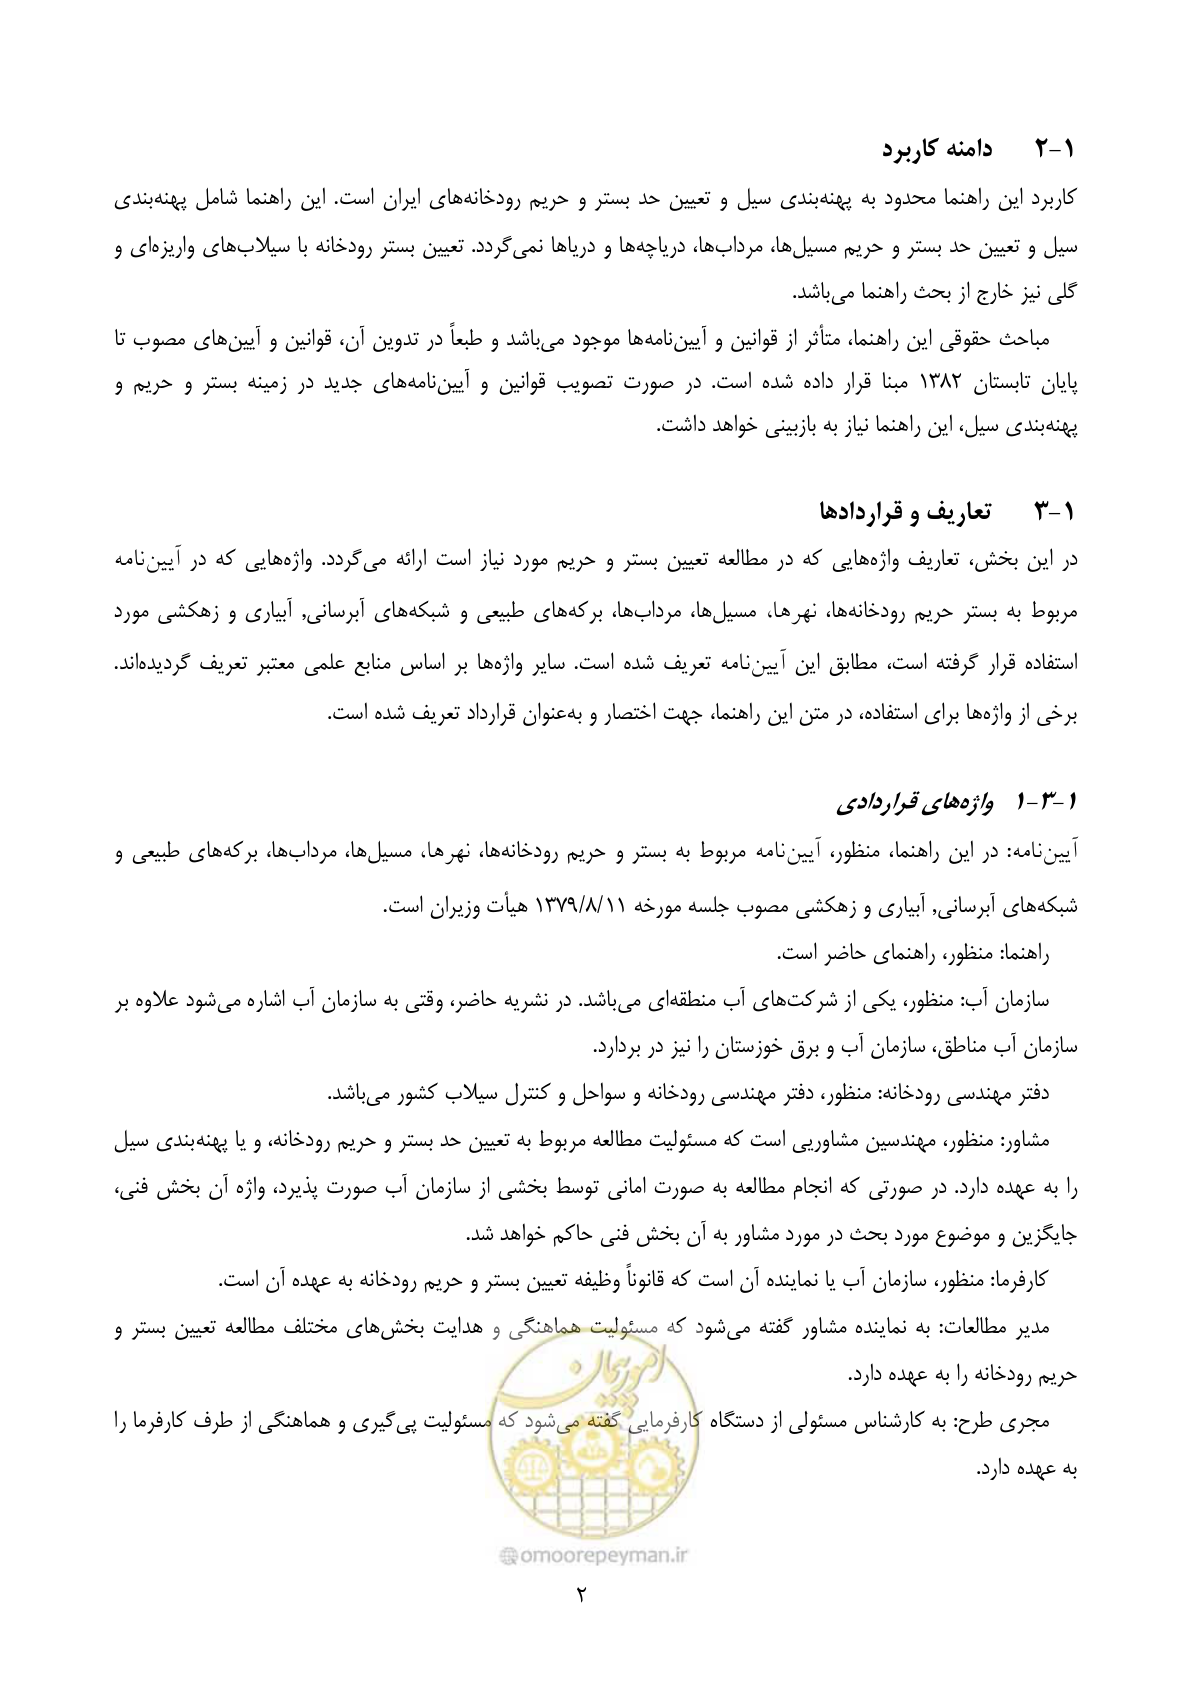 ۱-۲ دامنه کاربرد
کاربرد این راهنما محدود به پهنه‌بندی سیل و تعیین حد بستر و حریم رودخانه‌های ایران است. این راهنما شامل پهنه‌بندی
سیل و تعیین حد بستر و حریم مسیل‌ها، مرداب‌ها، دریاچه‌ها و دریاها نمی‌گردد. تعیین بستر رودخانه با سیلاب‌های واریزه‌ای و
گلی نیز خارج از بحث راهنما می‌باشد.
مباحث حقوقی این راهنما، متأثر از قوانین و آیین‌نامه‌ها موجود می‌باشد و طبعاً در تدوین آن، قوانین و آیین‌های مصوب تا
پایان تابستان ۱۳۸۲ مبنا قرار داده شده است. در صورت تصویب قوانین و آیین‌نامه‌های جدید در زمینه بستر و حریم و
پهنه‌بندی سیل، این راهنما نیاز به بازبینی خواهد داشت.
۱-۳ تعاریف و قراردادها
در این بخش، تعاریف واژه‌هایی که در مطالعه تعیین بستر و حریم مورد نیاز است ارائه می‌گردد. واژه‌هایی که در آیین‌نامه
مربوط به بستر حریم رودخانه‌ها، نهرها، مسیل‌ها، مرداب‌ها، برکه‌های طبیعی و شبکه‌های آبرسانی, آبیاری و زهکشی مورد
استفاده قرار گرفته است، مطابق این آیین‌نامه تعریف شده است. سایر واژه‌ها بر اساس منابع علمی معتبر تعریف گردیده‌اند.
برخی از واژه‌ها برای استفاده، در متن این راهنما، جهت اختصار و به‌عنوان قرارداد تعریف شده است.
۱-۳-۱ واژه‌های قراردادی
آیین‌نامه: در این راهنما، منظور، آیین‌نامه مربوط به بستر و حریم رودخانه‌ها، نهرها، مسیل‌ها، مرداب‌ها، برکه‌های طبیعی و
شبکه‌های آبرسانی, آبیاری و زهکشی مصوب جلسه مورخه ۱۳۷۹/۸/۱۱ هیأت وزیران است.
راهنما: منظور، راهنمای حاضر است.
سازمان آب: منظور، یکی از شرکت‌های آب منطقه‌ای می‌باشد. در نشریه حاضر، وقتی به سازمان آب اشاره می‌شود علاوه بر
سازمان آب مناطق، سازمان آب و برق خوزستان را نیز در بردارد.
دفتر مهندسی رودخانه: منظور، دفتر مهندسی رودخانه و سواحل و کنترل سیلاب کشور می‌باشد.
مشاور: منظور، مهندسین مشاوریی است که مسئولیت مطالعه مربوط به تعیین حد بستر و حریم رودخانه، و یا پهنه‌بندی سیل
را به عهده دارد. در صورتی که انجام مطالعه به صورت امانی توسط بخشی از سازمان آب صورت پذیرد، واژه آن بخش فنی،
جایگزین و موضوع مورد بحث در مورد مشاور به آن بخش فنی حاکم خواهد شد.
کارفرما: منظور، سازمان آب یا نماینده آن است که قانوناً وظیفه تعیین بستر و حریم رودخانه به عهده آن است.
مدیر مطالعات: به نماینده مشاور گفته می‌شود که مسئولیت هماهنگی و هدایت بخش‌های مختلف مطالعه تعیین بستر و
حریم رودخانه را به عهده دارد.
مجری طرح: به کارشناس مسئولی از دستگاه کارفرمایی گفته می‌شود که مسئولیت پی‌گیری و هماهنگی از طرف کارفرما را
به عهده دارد.
امور پیمان
@omoorepeyman.ir
۲